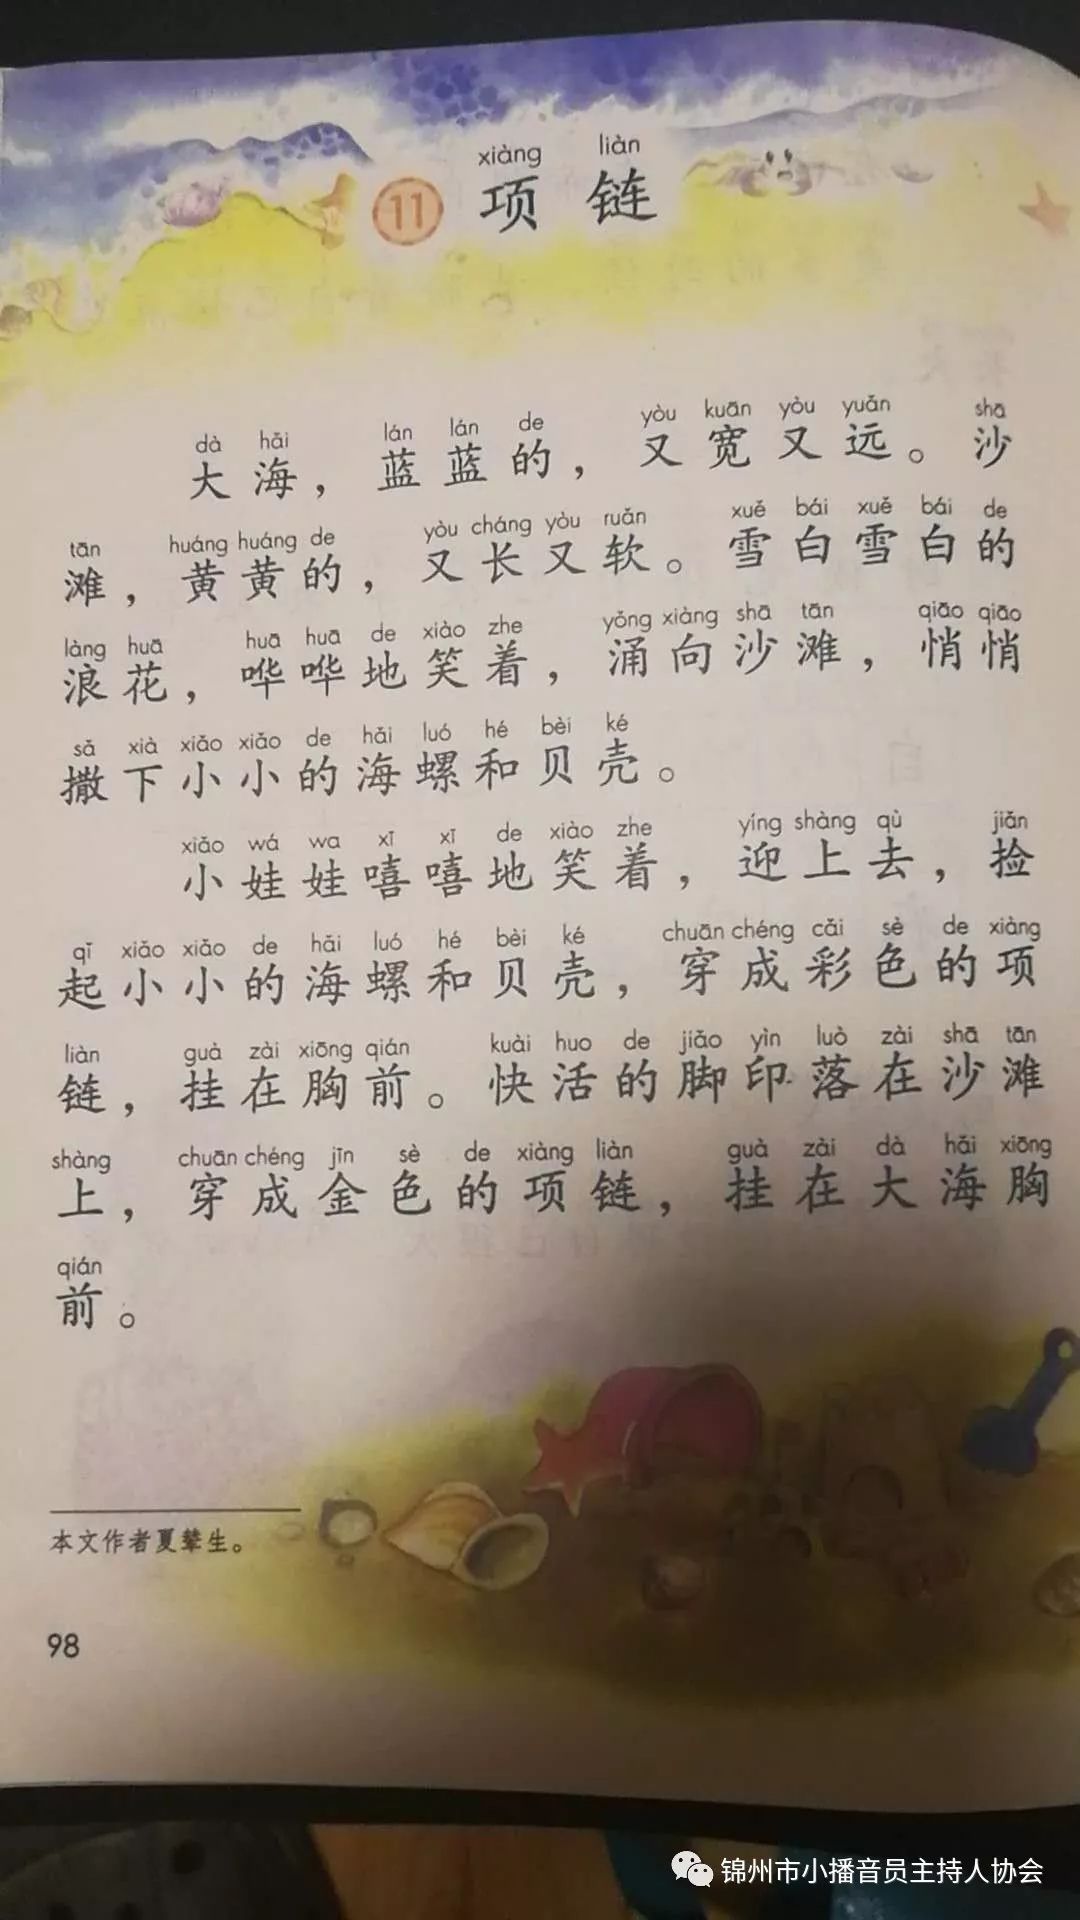 xiàng liàn
11 项链
dà hǎi lán lán de yòu kuān yòu yuǎn shā
大海，蓝蓝的，又宽又远。沙
tān huáng huáng de yòu cháng yòu ruǎn xuě bái xuě bái de
滩，黄黄的，又长又软。雪白雪白的
làng huā huā huā de xiào zhe yǒng xiàng shā tān qiāo qiāo
浪花，哗哗地笑着，涌向沙滩，悄悄
sǎ xià xiǎo xiǎo de hǎi luó hé bèi ké
撒下小小的海螺和贝壳。
xiǎo wá wa xī xī de xiào zhe yíng shàng qù jiǎn
小娃娃嘻嘻地笑着，迎上去，捡
qǐ xiǎo xiǎo de hǎi luó hé bèi ké chuān chéng cǎi sè de xiàng
起小小的海螺和贝壳，穿成彩色的项
liàn guà zài xiōng qián kuài huo de jiǎo yìn luò zài shā tān
链，挂在胸前。快活的脚印落在沙滩
shàng chuān chéng jīn sè de xiàng liàn guà zài dà hǎi xiōng
上，穿成金色的项链，挂在大海胸
qián
前。
本文作者夏辇生。
98
锦州市小播音员主持人协会